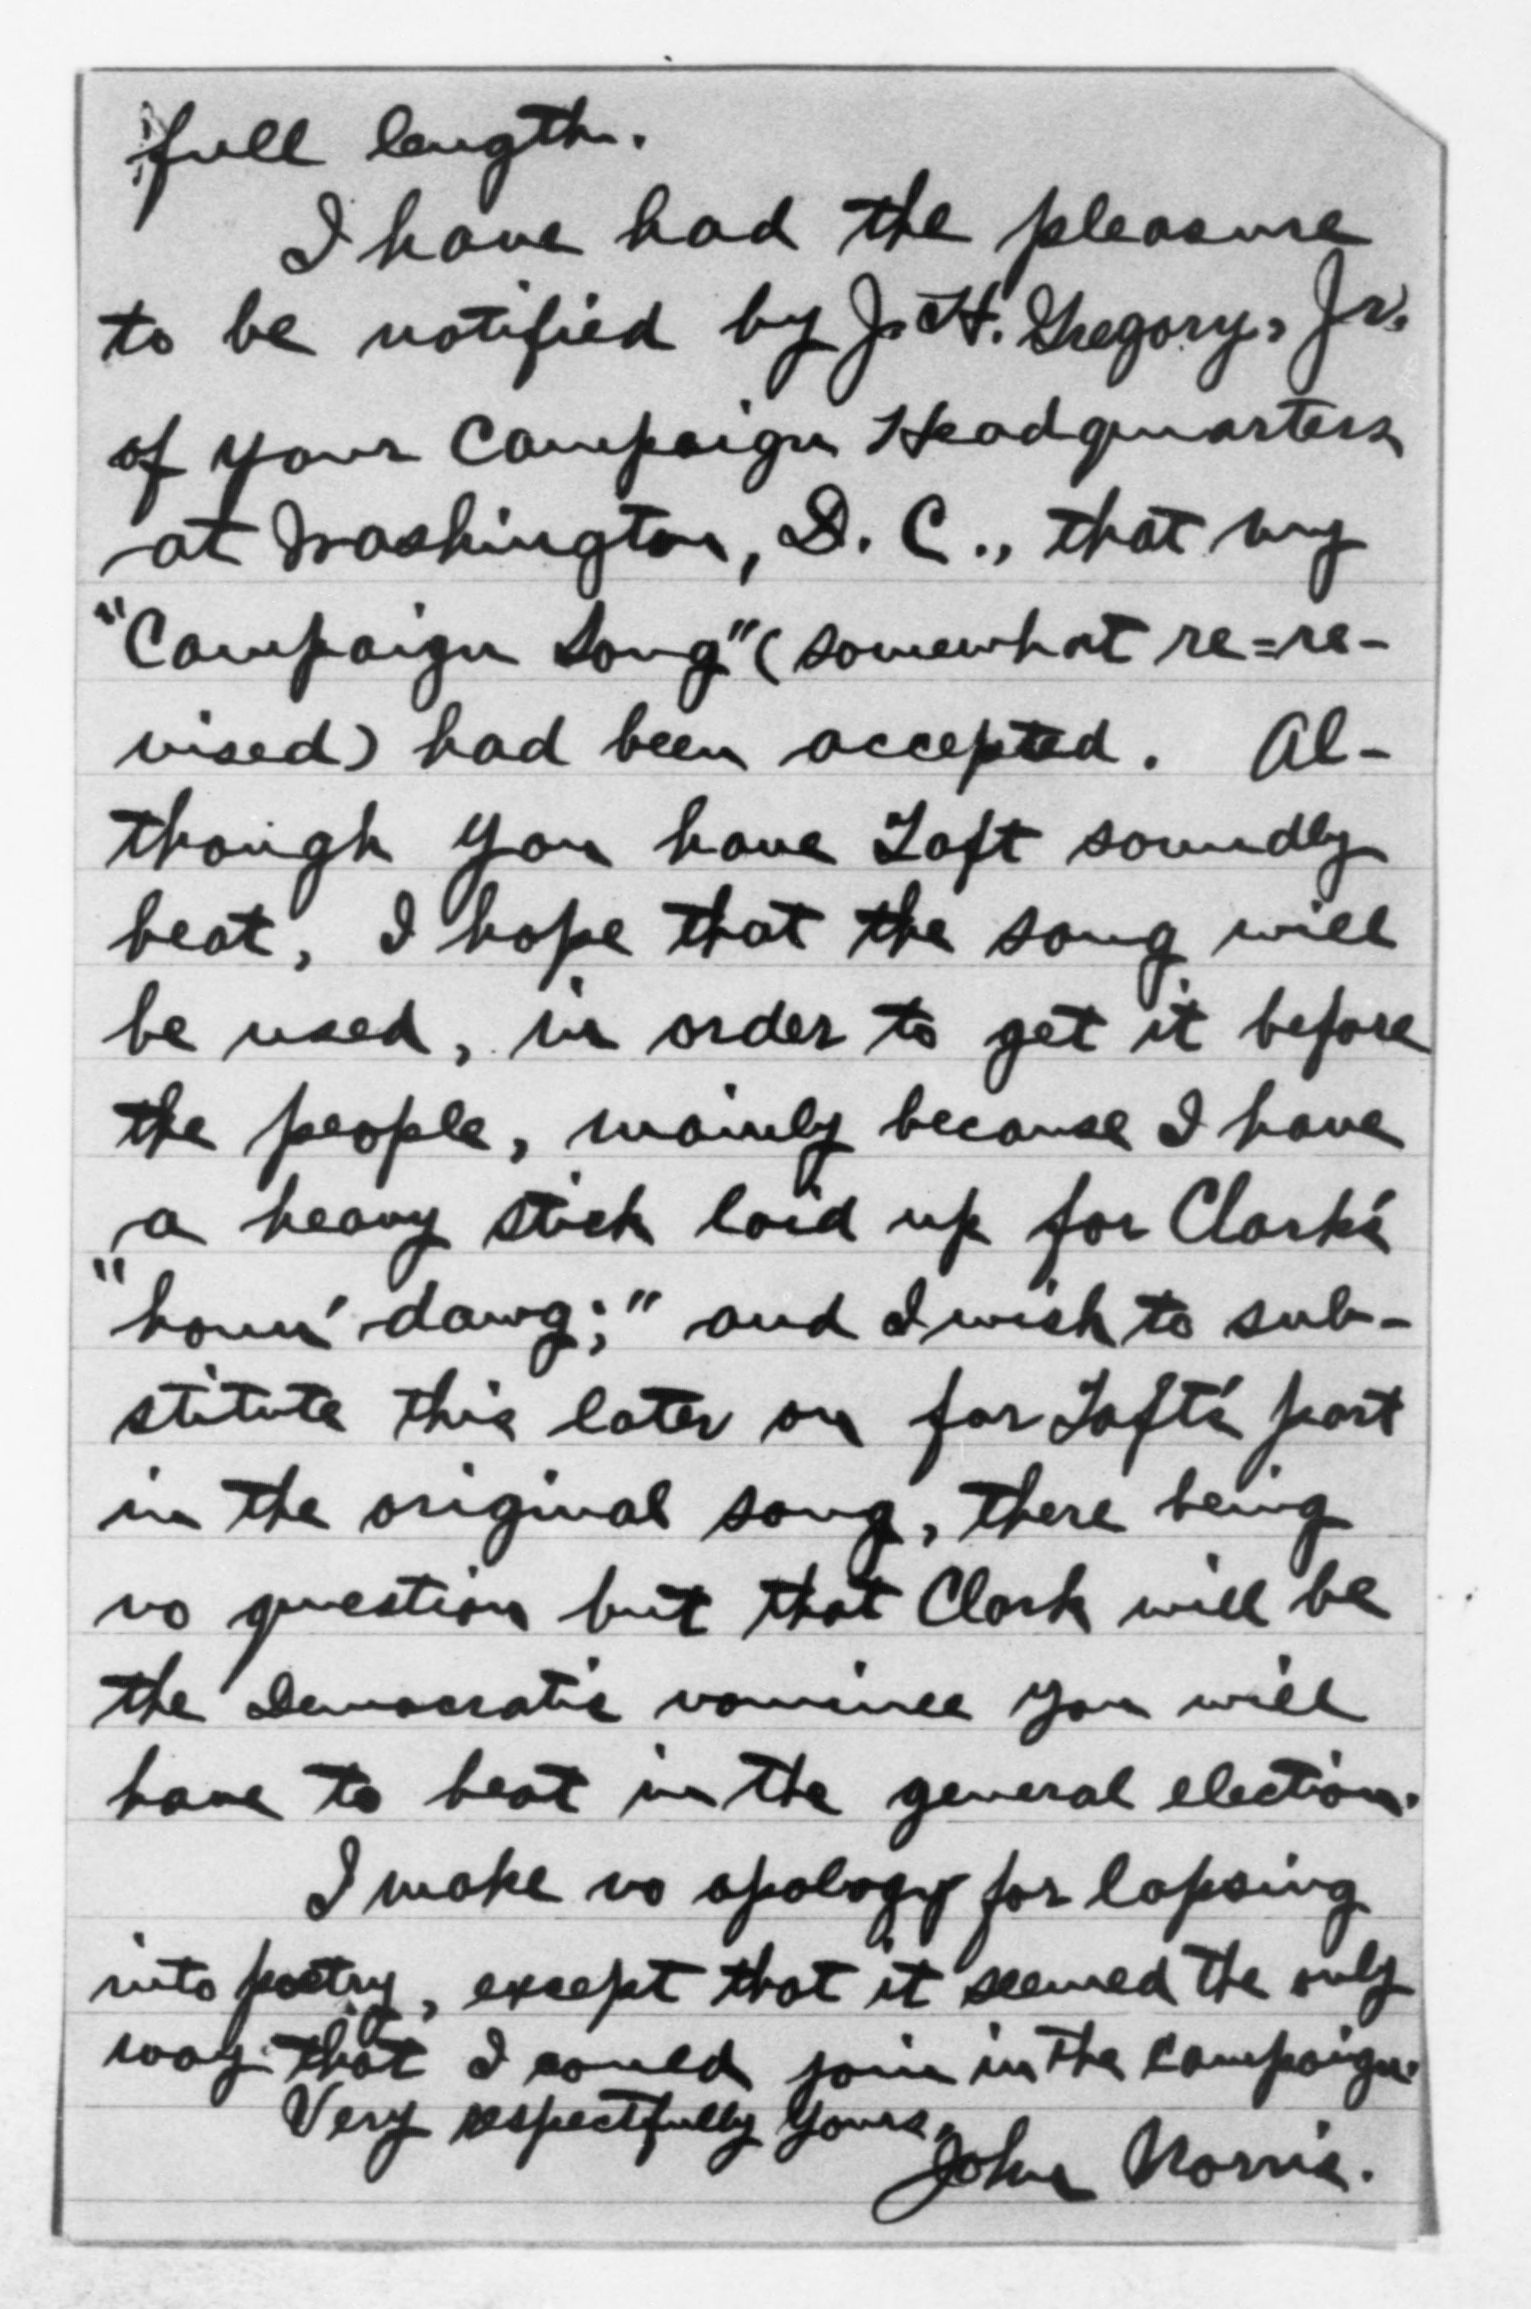 full length.
I have had the pleasure
to be notified by J. H. Gregory, Jr.
of your Campaign Headquarters
at Washington, D. C., that my
"Campaign Song" (somewhat re=re-
vised) had been accepted. Al-
though you have Taft soundly
beat, I hope that the song will
be used, in order to get it before
the people, mainly because I have
a heavy stick laid up for Clark's
"houn' dawg;" and I wish to sub-
stitute this later on for Taft's part
in the original song, there being
no question but that Clark will be
the Democratic nominee you will
have to beat in the general election.
I make no apology for lapsing
into poetry, except that it seemed the only
way that I could join in the campaign.
Very respectfully yours,
John Norris.